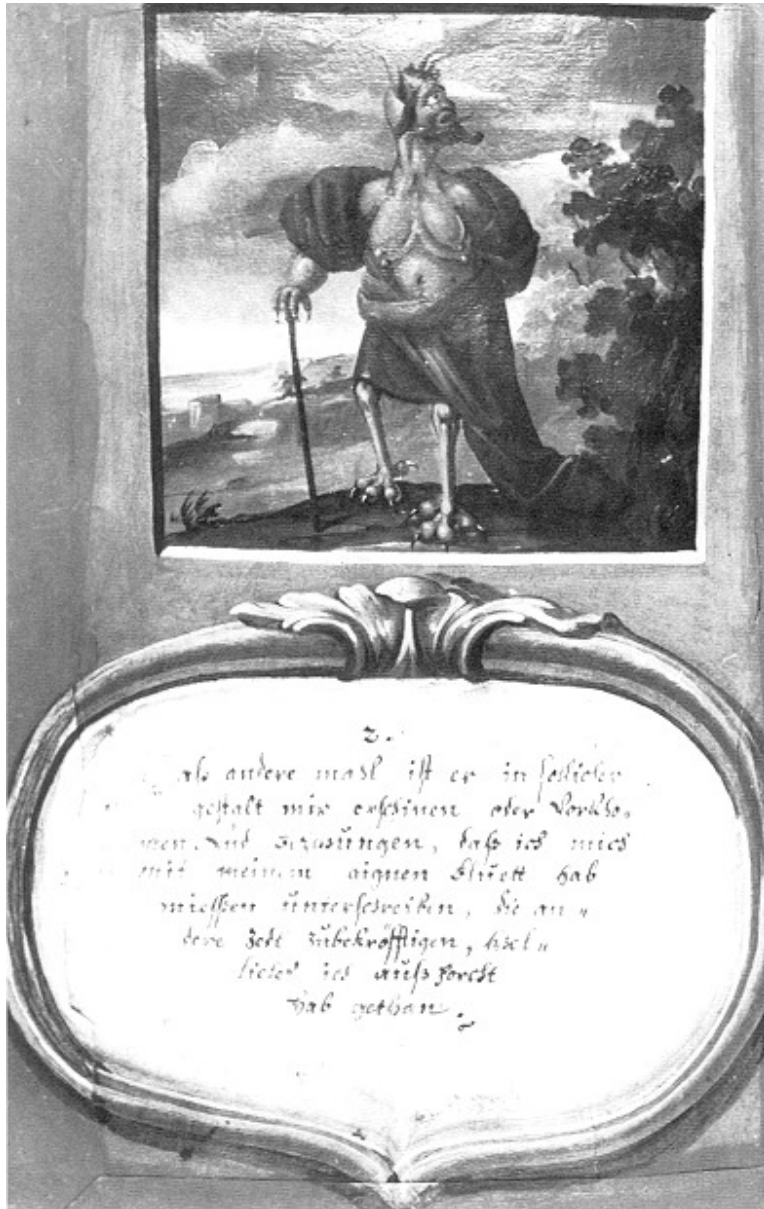 2.
alß andere mahl ist er in solicher
gestalt mir erschinen oder vorkho„
men. Und bezwungen, daß ich mich
mit meinem aignen Bluett hab
miessen unterschreiben, die an„
dere Zedl zubekröfftigen, wel„
liches ich auß forcht
hab gethan.